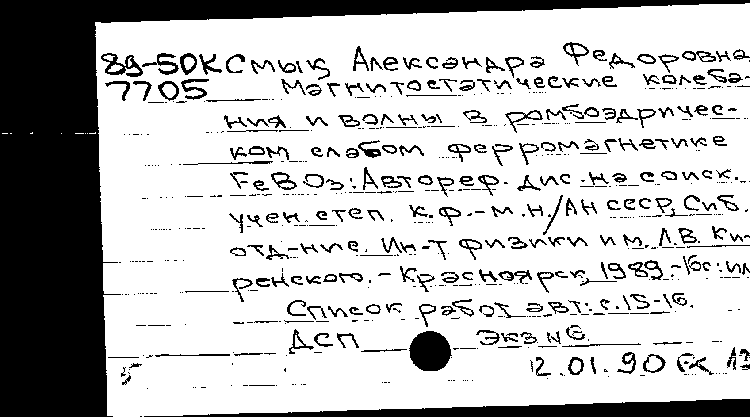 89-50К Смык, Александра Федоровна
7705 Магнитостатические колеба-
ния и волны в ромбоэдричес-
ком слабом ферромагнетике
FeBO3: Автореф. дис. на соиск.
учен. степ. к.ф.-м.н./АН СССР, Сиб.
отд-ние. Ин-т физики им. Л.В. Ки-
ренского. - Красноярск, 1989.-16с: ил
Список работ авт: с.15-16.
ДСП Экз №6
5 12.01.90